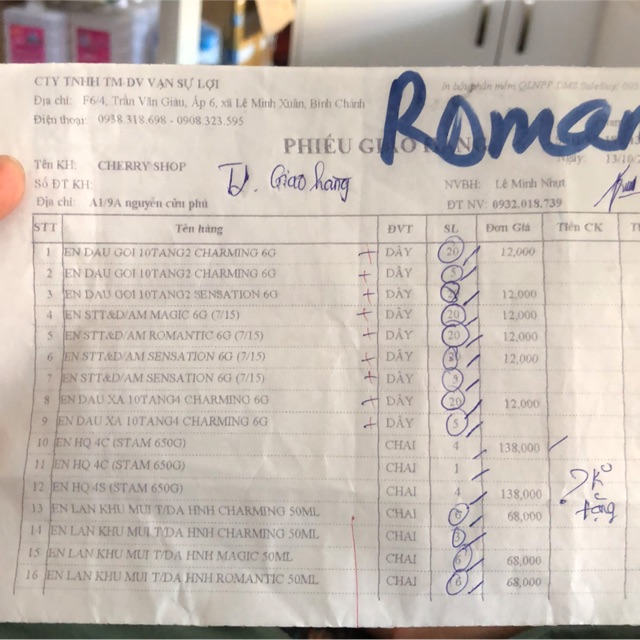 CTY TNHH TM-DV VẠN SỰ LỢI
Địa chỉ: F6/4, Trần Văn Giàu, Ấp 6, xã Lê Minh Xuân, Bình Chánh
In bởi phần mềm QLNPP DMS
Điện thoại: 0938.318.698 - 0908.323.595
Roman
PHIẾU GIAO HÀNG
Ngày: 13/10/2
Tên KH: CHERRY SHOP
Giao hàng
Số ĐT KH:
NVBH: Lê Minh Nhựt
Địa chỉ: A1/9A nguyễn cửu phú
ĐT NV: 0932.018.739
STT Tên hàng ĐVT SL Đơn Giá Tiền CK
1 EN DAU GOI 10TANG2 CHARMING 6G DÂY 20 12,000
2 EN DAU GOI 10TANG2 CHARMING 6G DÂY 5
3 EN DAU GOI 10TANG2 SENSATION 6G DÂY 12,000
4 EN STT&D/AM MAGIC 6G (7/15) DÂY 20 12,000
5 EN STT&D/AM ROMANTIC 6G (7/15) DÂY 20 12,000
6 EN STT&D/AM SENSATION 6G (7/15) DÂY 12,000
7 EN STT&D/AM SENSATION 6G (7/15) DÂY
8 EN DAU XA 10TANG4 CHARMING 6G DÂY 20 12,000
9 EN DAU XA 10TANG4 CHARMING 6G DÂY 5
10 EN HQ 4C (STAM 650G) CHAI 4 138,000
11 EN HQ 4C (STAM 650G) CHAI 1
12 EN HQ 4S (STAM 650G) CHAI 4 138,000
? K
tặng
13 EN LAN KHU MUI T/DA HNH CHARMING 50ML CHAI 6 68,000
14 EN LAN KHU MUI T/DA HNH CHARMING 50ML CHAI 3
15 EN LAN KHU MUI T/DA HNH MAGIC 50ML CHAI 6 68,000
16 EN LAN KHU MUI T/DA HNH ROMANTIC 50ML CHAI 6 68,000